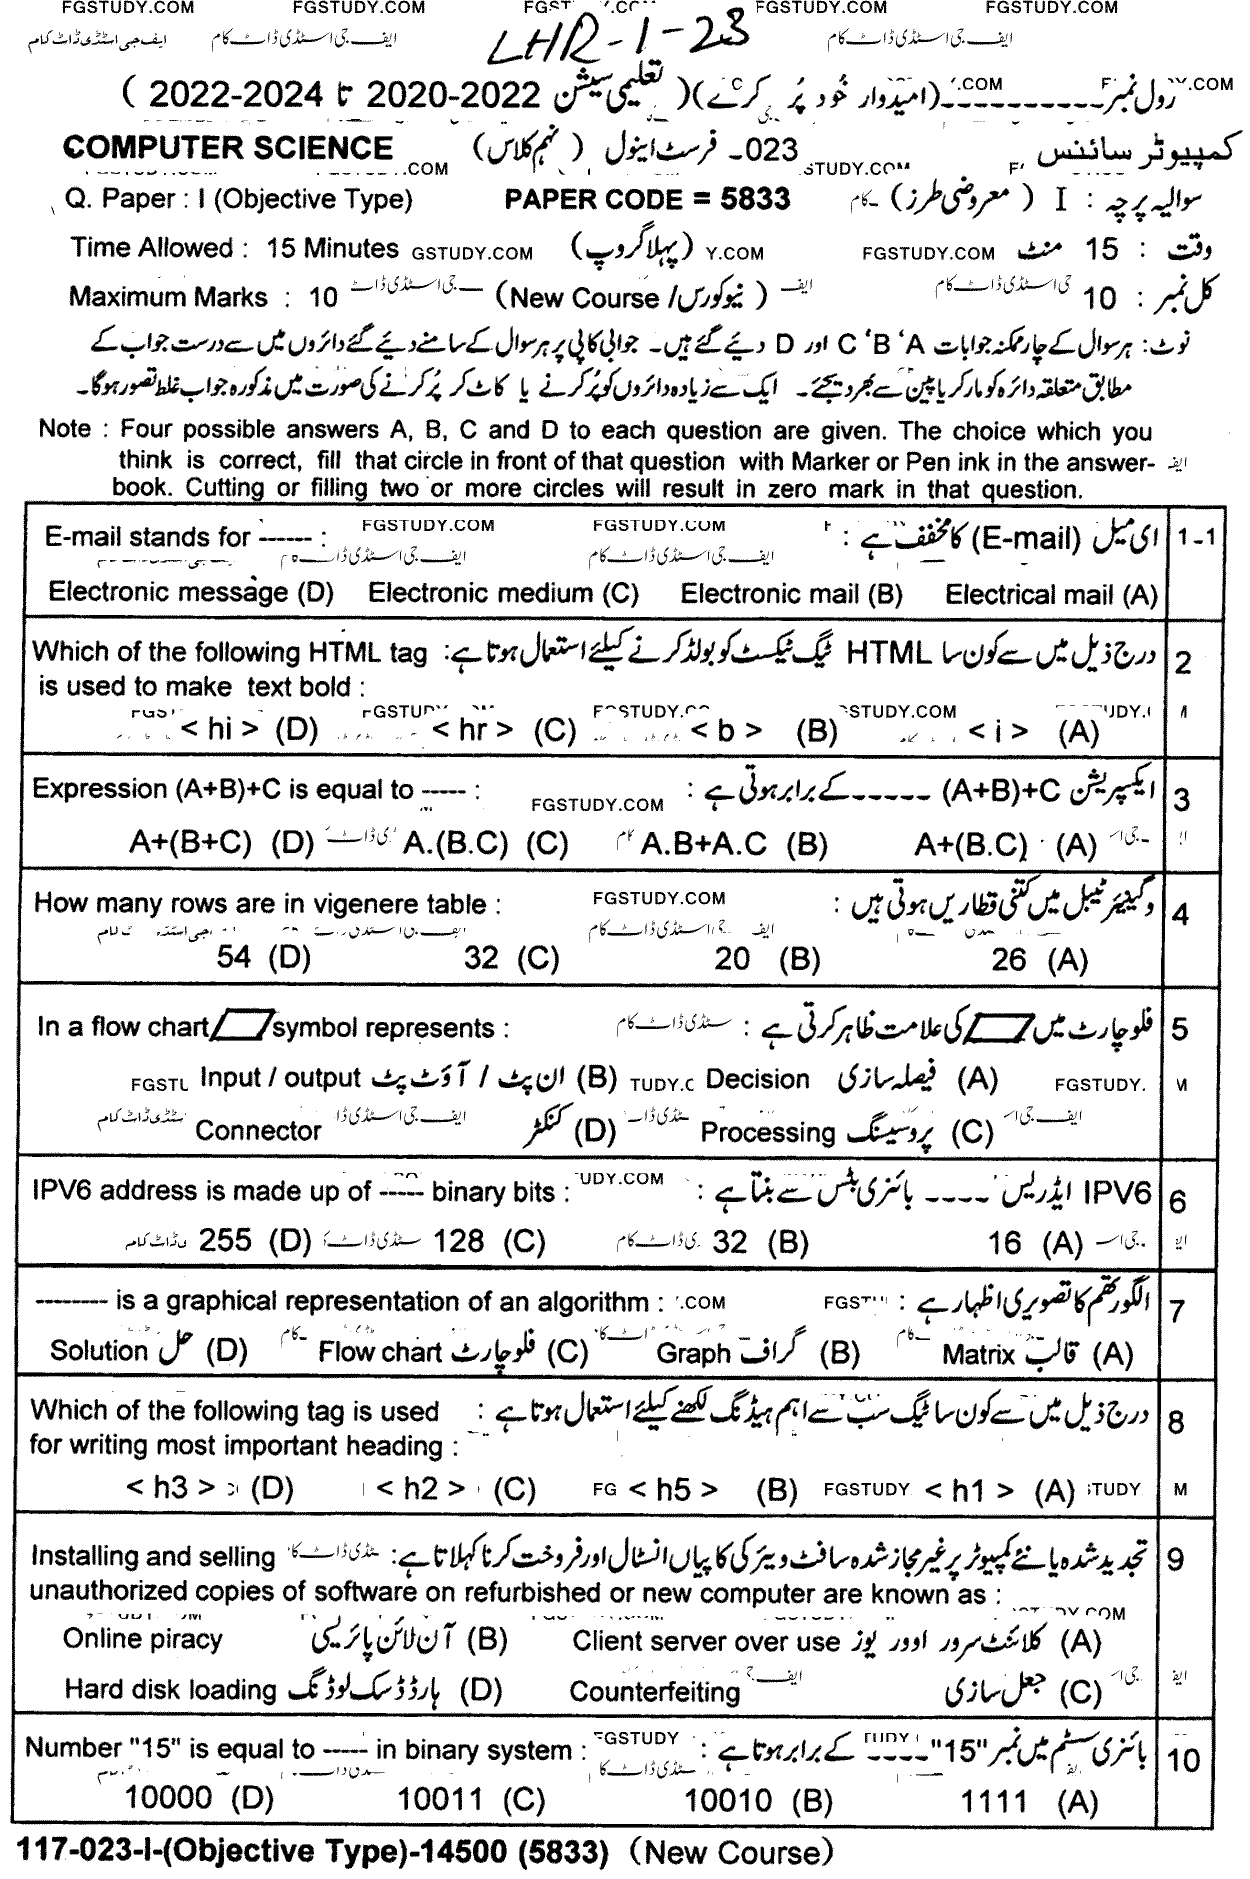 FGSTUDY.COM FGSTUDY.COM FGST FGSTUDY.COM FGSTUDY.COM
ایف جی اسٹڈی ڈاٹ کام ایف جی اسٹڈی ڈاٹ کام LHR-1-23 ایف جی اسٹڈی ڈاٹ کام
رول نمبر---------- (امیدوار خُود پُر کرے) ( تعلیمی سیشن 2020-2022 تا 2022-2024 )
COMPUTER SCIENCE کمپیوٹر سائنس 023۔ فرسٹ اینول ( نہم کلاس)
Q. Paper : I (Objective Type) PAPER CODE = 5833 سوالیہ پرچہ : I ( معروضی طرز)
Time Allowed : 15 Minutes GSTUDY.COM (پہلا گروپ) Y.COM FGSTUDY.COM وقت : 15 منٹ
Maximum Marks : 10 (New Course / نیو کورس ) کل نمبر : 10
نوٹ: ہر سوال کے چار ممکنہ جوابات A، B، C اور D دیئے گئے ہیں۔ جوابی کاپی پر ہر سوال کے سامنے دیئے گئے دائروں میں سے درست جواب کے
مطابق متعلقہ دائرہ کو مارکر یا پین سے بھر دیجئے۔ ایک سے زیادہ دائروں کو پُر کرنے یا کاٹ کر پُر کرنے کی صورت میں مذکورہ جواب غلط تصور ہوگا۔
Note : Four possible answers A, B, C and D to each question are given. The choice which you
think is correct, fill that circle in front of that question with Marker or Pen ink in the answer-
book. Cutting or filling two or more circles will result in zero mark in that question.
E-mail stands for ------ : FGSTUDY.COM FGSTUDY.COM ای میل (E-mail) کا مخفف ہے : 1-1
Electronic message (D) Electronic medium (C) Electronic mail (B) Electrical mail (A)
Which of the following HTML tag درج ذیل میں سے کون سا HTML ٹیگ ٹیکسٹ کو بولڈ کرنے کیلئے استعمال ہوتا ہے: 2
is used to make text bold :
< hi > (D) < hr > (C) < b > (B) < i > (A)
Expression (A+B)+C is equal to ----- : FGSTUDY.COM ایکسپریشن (A+B)+C ----- کے برابر ہوتی ہے : 3
A+(B+C) (D) A.(B.C) (C) A.B+A.C (B) A+(B.C) (A)
How many rows are in vigenere table : FGSTUDY.COM وگینیئر ٹیبل میں کتنی قطاریں ہوتی ہیں : 4
54 (D) 32 (C) 20 (B) 26 (A)
In a flow chart symbol represents : فلو چارٹ میں کی علامت ظاہر کرتی ہے : 5
Input / output ان پٹ / آؤٹ پٹ (B) Decision فیصلہ سازی (A) FGSTUDY.
Connector کنکٹر (D) Processing پروسیسنگ (C)
IPV6 address is made up of ----- binary bits : IPV6 ایڈریس ---- بائنری بٹس سے بنتا ہے : 6
255 (D) 128 (C) 32 (B) 16 (A)
-------- is a graphical representation of an algorithm : الگورتھم کا تصویری اظہار ہے : 7
Solution حل (D) Flow chart فلو چارٹ (C) Graph گراف (B) Matrix قالب (A)
Which of the following tag is used درج ذیل میں سے کون سا ٹیگ سب سے اہم ہیڈنگ لکھنے کیلئے استعمال ہوتا ہے : 8
for writing most important heading :
< h3 > (D) < h2 > (C) < h5 > (B) < h1 > (A)
Installing and selling تجدید شدہ یا نئے کمپیوٹر پر غیر مجاز شدہ سافٹ ویئر کی کاپیاں انسٹال اور فروخت کرنا کہلاتا ہے: 9
unauthorized copies of software on refurbished or new computer are known as :
Online piracy آن لائن پائریسی (B) Client server over use کلائنٹ سرور اوور یوز (A)
Hard disk loading ہارڈ ڈسک لوڈنگ (D) Counterfeiting جعل سازی (C)
Number "15" is equal to ----- in binary system : بائنری سسٹم میں نمبر "15" ---- کے برابر ہوتا ہے : 10
10000 (D) 10011 (C) 10010 (B) 1111 (A)
117-023-I-(Objective Type)-14500 (5833) (New Course)